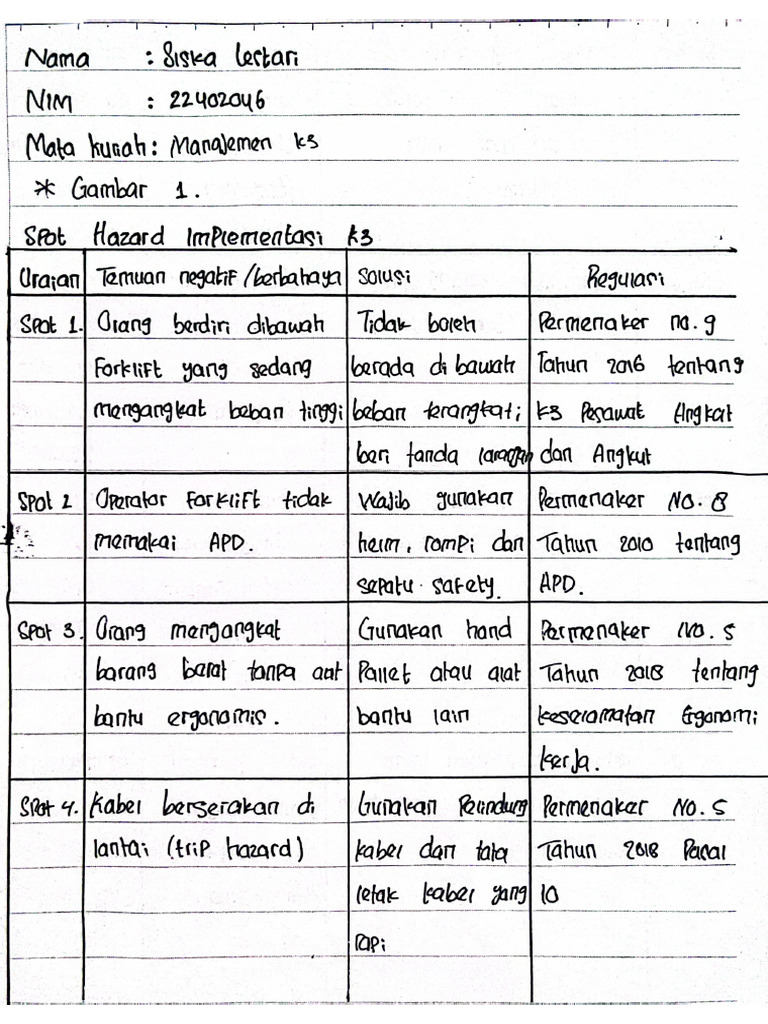 Nama : Siska Lestari
NIM : 22402046
Mata kuliah : Manajemen K3
* Gambar 1.
Spot Hazard Implementasi K3
Uraian Temuan negatif/berbahaya Solusi Regulasi
Spot 1. Orang berdiri dibawah Tidak boleh Permenaker no. 9
Forklift yang sedang berada di bawah Tahun 2016 tentang
mengangkat beban tinggi beban terangkat; K3 Pesawat Angkat
beri tanda larangan dan Angkut
Spot 2 Operator Forklift tidak Wajib gunakan Permenaker No. 8
memakai APD. helm, rompi dan Tahun 2010 tentang
sepatu safety. APD.
Spot 3. Orang mengangkat Gunakan hand Permenaker No. 5
barang berat tanpa alat Pallet atau alat Tahun 2018 tentang
bantu ergonomis. bantu lain keselamatan Ergonomi
kerja.
Spot 4. Kabel berserakan di Gunakan Pelindung Permenaker No. 5
lantai (trip hazard) kabel dan tata Tahun 2018 Pasal
letak kabel yang 10
rapi